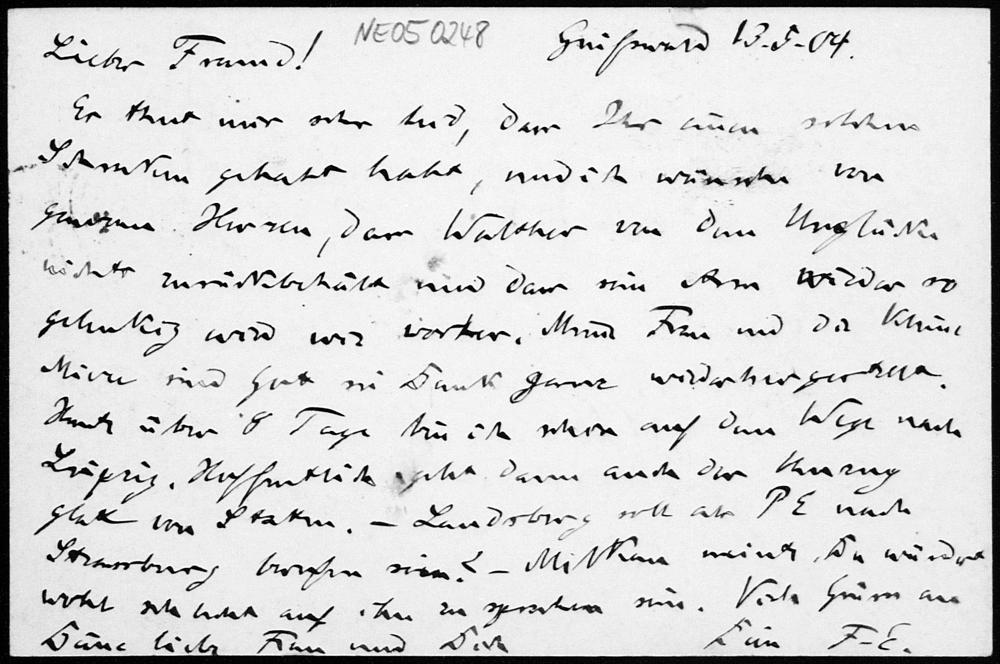 NE050248
Lieber Freund! Greifswald 13-5-04.
Es thut mir sehr leid, dass Ihr einen solchen
Schrecken gehabt habt, und ich wünsche von
ganzem Herzen, dass Walther von dem Unglücke
nichts zurückbehält und dass sein Arm wieder so
gelenkig wird wie vorher. Meine Frau und die kleine
sind Gott sei Dank ganz wiederhergestellt.
Heute über 8 Tage bin ich schon auf dem Wege nach
Leipzig. Hoffentlich geht dann auch der Umzug
glatt von Statten. – Landsberg soll als PE nach
Strassburg berufen sein? – meinte, Du würdest
wohl schlecht auf ihn zu sprechen sein. Viele Grüsse an
Deine liebe Frau und Dich Dein F-E.